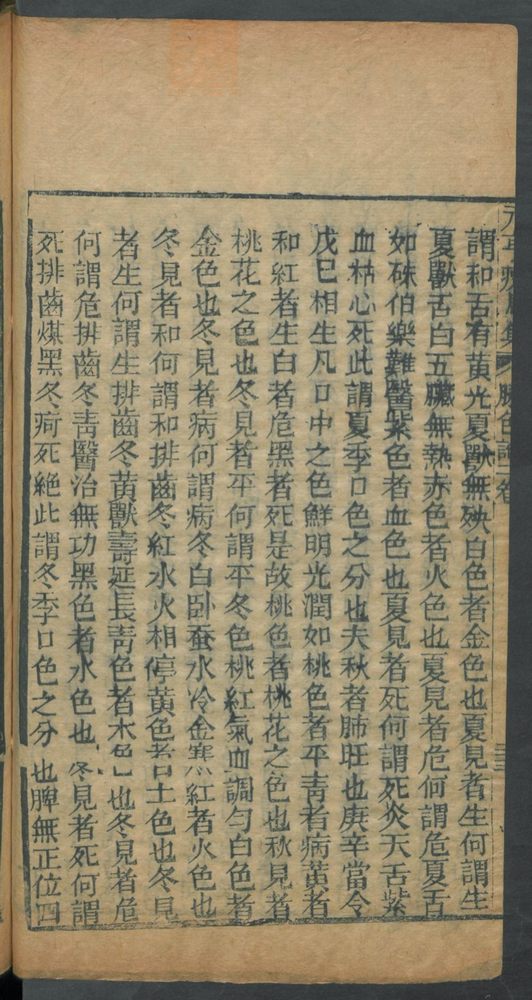 謂和舌有黃光夏獸無殃白色者金色也夏見者生何謂生
夏獸舌白五臟無熱赤色者火色也夏見者危何謂危夏舌
如硃伯樂難醫紫色者血色也夏見者死何謂死炎天舌紫
血枯心死此謂夏季口色之分也夫秋者肺旺也庚辛當令
戊巳相生凡口中之色鮮明光潤如桃色者平靑者病黃者
和紅者生白者危黑者死是故桃色者桃花之色也秋見者
桃花之色也冬見者平何謂平冬色桃紅氣血調勻白色者
金色也冬見者病何謂病冬白卧蚕水冷金寒紅者火色也
冬見者和何謂和排齒冬紅水火相停黃色者土色也冬見
者生何謂生排齒冬黃獸壽延長靑色者木色也冬見者危
何謂危排齒冬靑醫治無功黑色者水色也冬見者死何謂
死排齒煤黑冬疴死絶此謂冬季口色之分也脾無正位四